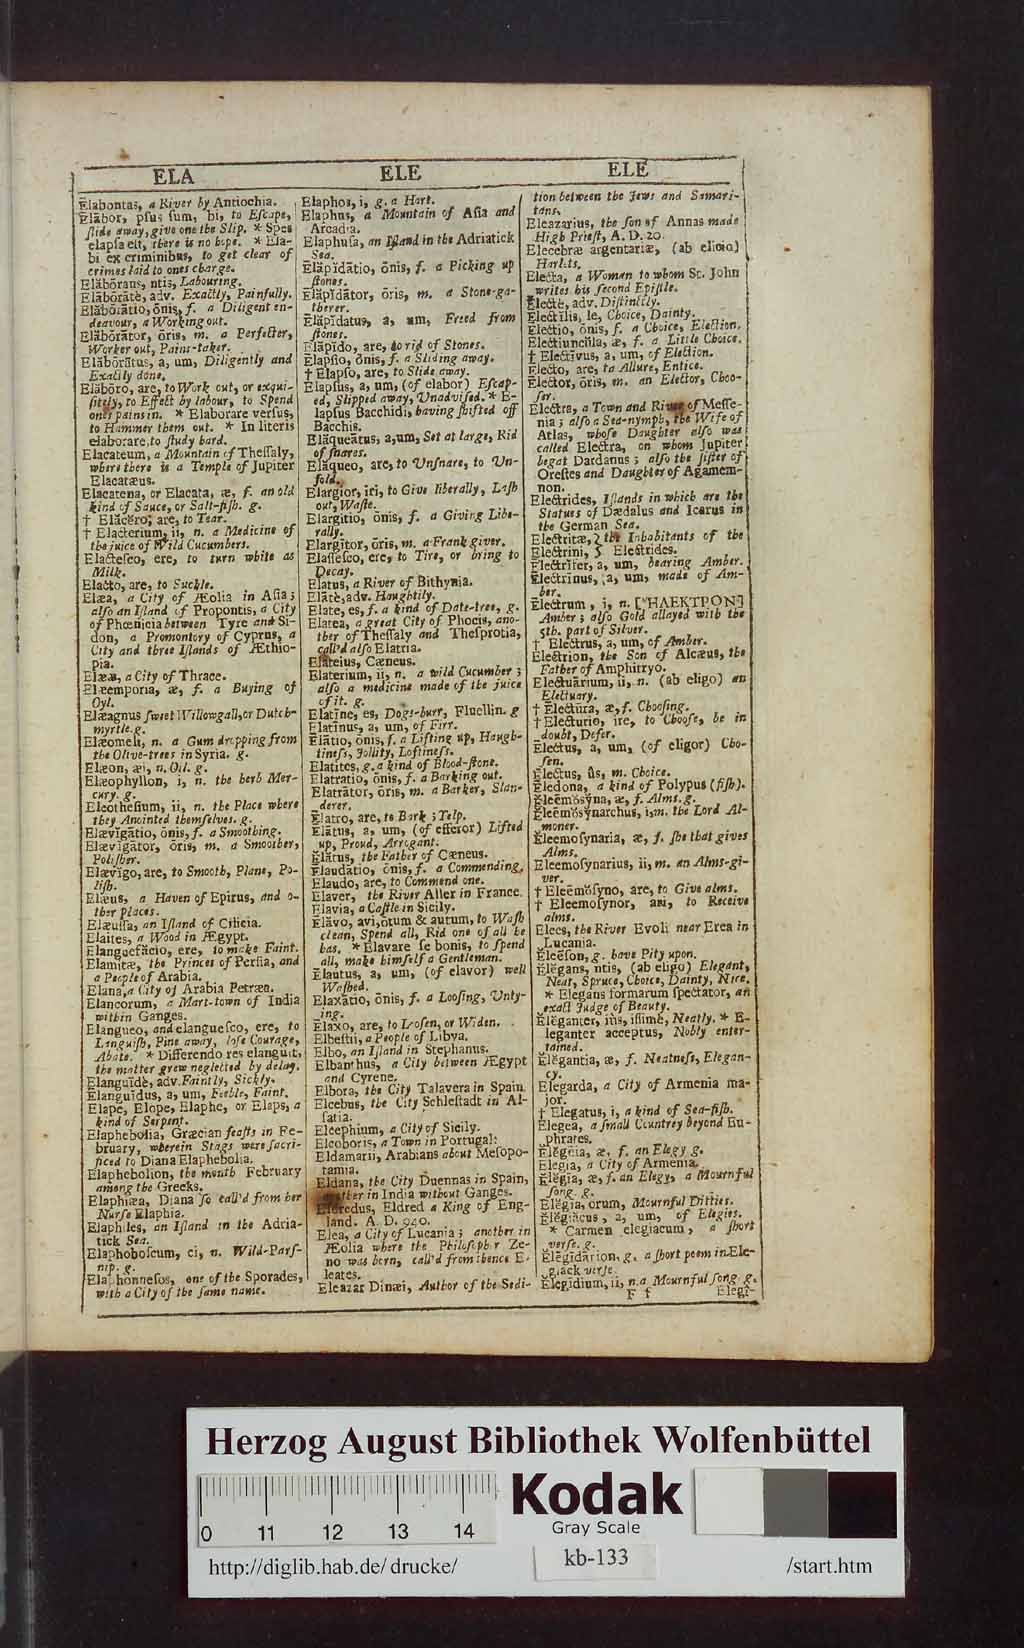 ELA
ELE
ELE
Elabontas, a River by Antiochia.
Elābor, pſus ſum, bi, to Eſcape,
ſlide away, give one the Slip. * Spes
elapſa eſt, there is no hope. * Ela-
bi ex criminibus, to get clear of
crimes laid to ones charge.
Elābōrans, ntis, Labouring.
Elābōrātè, adv. Exactly, Painfully.
Elābōrātio, ōnis, f. a Diligent en-
deavour, a Working out.
Elābōrātor, ōris, m. a Perfecter,
Worker out, Pains-taker.
Elābōrātus, a, um, Diligently and
Exactly done.
Elābōro, are, to Work out, or exqui-
ſitely, to Effect by labour, to Spend
ones pains in. * Elaborare verſus,
to Hammer them out. * In literis
elaborare, to ſtudy hard.
Elacateum, a Mountain of Theſſaly,
where there is a Temple of Jupiter
Elacatæus.
Elacatena, or Elacata, æ, f. an old
kind of Sauce, or Salt-fiſh. g.
† Elăcĕro, are, to Tear.
† Elacterium, ii, n. a Medicine of
the juice of Wild Cucumbers.
Elacteſco, ere, to turn white as
Milk.
Elacto, are, to Suckle.
Elæa, a City of Æolia in Aſia;
alſo an Iſland of Propontis, a City
of Phœnicia between Tyre and Si-
don, a Promontory of Cyprus, a
City and three Iſlands of Æthio-
pia.
Elææ, a City of Thrace.
Elæemporia, æ, f. a Buying of
Oyl.
Elæagnus ſweet Willow gall, or Dutch-
myrtle. g.
Elæomeli, n. a Gum dropping from
the Olive-trees in Syria. g.
Elæon, æi, n. Oil. g.
Elæophyllon, i, n. the herb Mer-
cury. g.
Eleotheſium, ii, n. the Place where
they Anointed themſelves. g.
Elævĭgātio, ōnis, f. a Smoothing.
Elævĭgātor, ōris, m. a Smoother,
Poliſher.
Elævĭgo, are, to Smooth, Plane, Po-
liſh.
Elæus, a Haven of Epirus, and o-
ther places.
Elæuſſa, an Iſland of Cilicia.
Elaites, a Wood in Ægypt.
Elanguefācio, ere, to make Faint.
Elamitæ, the Princes of Perſia, and
a People of Arabia.
Elana, a City of Arabia Petræa.
Elancorum, a Mart-town of India
within Ganges.
Elangueo, and elangueſco, ere, to
Languiſh, Pine away, loſe Courage,
Abate. * Differendo res elanguit,
the matter grew neglected by delay.
Elanguĭdè, adv. Faintly, Sickly.
Elanguĭdus, a, um, Feeble, Faint.
Elape, Elope, Elaphe, or Elaps, a
kind of Serpent.
Elaphebolia, Græcian feaſts in Fe-
bruary, wherein Stags were ſacri-
ficed to Diana Elaphebolia.
Elaphebolion, the month February
among the Greeks.
Elaphiæa, Diana ſo call'd from her
Nurſe Elaphia.
Elaphiles, an Iſland in the Adria-
tick Sea.
Elaphoboſcum, ci, n. Wild-Parſ-
nip. g.
Elaphonneſos, one of the Sporades,
with a City of the ſame name.
Elaphos, i, g. a Hart.
Elaphus, a Mountain of Aſia and
Arcadia.
Elaphuſa, an Iſland in the Adriatick
Sea.
Elăpĭdātio, ōnis, f. a Picking up
ſtones.
Elăpĭdātor, ōris, m. a Stone-ga-
therer.
Elăpĭdatus, a, um, Freed from
ſtones.
Elăpĭdo, are, to rid of Stones.
Elapſio, ōnis, f. a Sliding away.
† Elapſo, are, to Slide away.
Elapſus, a, um, (of elabor) Eſcap-
ed, Slipped away, Unadviſed. * E-
lapſus Bacchidi, having ſhifted off
Bacchis.
Elăqueātus, a, um, Set at large, Rid
of ſnares.
Elăqueo, are, to Unſnare, to Un-
fold.
Elargior, iri, to Give liberally, Laſh
out, Waſte.
Elargītio, ōnis, f. a Giving Libe-
rally.
Elargĭtor, ōris, m. a Frank giver.
Elaſſeſco, ere, to Tire, or bring to
Decay.
Elatus, a River of Bithynia.
Elātè, adv. Haughtily.
Elate, es, f. a kind of Date-tree, g.
Elatea, a great City of Phocis, ano-
ther of Theſſaly and Theſprotia,
call'd alſo Elatria.
Elateius, Cæneus.
Elaterium, ii, n. a wild Cucumber;
alſo a medicine made of the juice
of it. g.
Elatīne, es, Dogs-burr, Fluellin. g
Elatinus, a, um, of Firr.
Elātio, ōnis, f. a Lifting up, Haugh-
tineſs, Jollity, Loftineſs.
Elatites, g. a kind of Blood-ſtone.
Elatratio, ōnis, f. a Barking out.
Elatrātor, ōris, m. a Barker, Slan-
derer.
Elatro, are, to Bark; Yelp.
Elātus, a, um, (of efferor) Lifted
up, Proud, Arrogant.
Elātus, the Father of Cæneus.
Elaudātio, ōnis, f. a Commending.
Elaudo, are, to Commend one.
Elaver, the River Aller in France.
Elavia, a Caſtle in Sicily.
Elăvo, avi, ōtum & autum, to Waſh
clean, Spend all, Rid one of all he
has. * Elavare ſe bonis, to ſpend
all, make himſelf a Gentleman.
Elautus, a, um, (of elavor) well
Waſhed.
Elaxātio, ōnis, f. a Looſing, Unty-
ing.
Elaxo, are, to Looſen, or Widen.
Elbeſtii, a People of Libya.
Elbo, an Iſland in Stephanus.
Elbanthus, a City between Ægypt
and Cyrene.
Elbora, the City Talavera in Spain.
Elcebus, the City Schleſtadt in Al-
ſatia.
Elcephium, a City of Sicily.
Elcoboris, a Town in Portugal:
Eldamarii, Arabians about Meſopo-
tamia.
Eldana, the City Duennas in Spain,
another in India without Ganges.
Eldredus, Eldred a King of Eng-
land. A. D. 940.
Elea, a City of Lucania; another in
Æolia where the Philoſopher Ze-
no was born, call'd from thence E-
leates.
Eleazar Dinæi, Author of the Sedi-
tion between the Jews and Samari-
tans.
Eleazarius, the ſon of Annas made
High Prieſt, A. D. 20.
Elecebræ argentariæ, (ab elicio)
Harlots.
Electa, a Woman to whom St. John
writes his ſecond Epiſtle.
Electè, adv. Diſtinctly.
Electĭlis, le, Choice, Dainty.
Electio, ōnis, f. a Choice, Election.
Electiuncŭla, æ, f. a Little Choice.
† Electīvus, a, um, of Election.
Electo, are, to Allure, Entice.
Elector, ōris, m. an Elector, Choo-
ſer.
Electra, a Town and River of Meſſe-
nia; alſo a Sea-nymph, the Wife of
Atlas, whoſe Daughter alſo was
called Electra, on whom Jupiter
begat Dardanus; alſo the ſiſter of
Oreſtes and Daughter of Agamem-
non.
Electrides, Iſlands in which are the
Statues of Dædalus and Icarus in
the German Sea.
Electritæ, } the Inhabitants of the
Electrini, } Electrides.
Electrĭfer, a, um, bearing Amber.
Electrĭnus, a, um, made of Am-
ber.
Electrum, i, n. [ἨΛΕΚΤΡΟΝ]
Amber; alſo Gold allayed with the
5th. part of Silver.
† Electrus, a, um, of Amber.
Electrion, the Son of Alcæus, the
Father of Amphitryo.
Electuārium, ii, n. (ab eligo) an
Electuary.
† Electūra, æ, f. Chooſing.
† Electurio, ire, to Chooſe, be in
doubt, Defer.
Electus, a, um, (of eligor) Cho-
ſen.
Electus, ûs, m. Choice.
Eledona, a kind of Polypus (fiſh).
Elĕēmŏſyna, æ, f. Alms. g.
Elĕēmŏſynarchus, i, m. the Lord Al-
moner.
Eleemoſynaria, æ, f. ſhe that gives
Alms.
Eleemoſynarius, ii, m. an Alms-gi-
ver.
† Eleēmŏſyno, are, to Give alms.
† Eleemoſynor, ari, to Receive
alms.
Elees, the River Evoli near Erea in
Lucania.
Elĕēſon, g. have Pity upon.
Elĕgans, ntis, (ab eligo) Elegant,
Neat, Spruce, Choice, Dainty, Nice.
* Elegans formarum ſpectator, an
exact Judge of Beauty.
Elĕganter, iùs, iſſimè, Neatly. * E-
leganter acceptus, Nobly enter-
tained.
Elĕgantia, æ, f. Neatneſs, Elegan-
cy.
Elegarda, a City of Armenia ma-
jor.
† Elegatus, i, a kind of Sea-fiſh.
Elegea, a ſmall Countrey beyond Eu-
phrates.
Elĕgeia, æ, f. an Elegy g.
Elegia, a City of Armenia.
Elĕgia, æ, f. an Elegy, a Mournful
ſong. g.
Elĕgia, orum, Mournful Ditties.
Elĕgiăcus, a, um, of Elegies.
* Carmen elegiacum, a ſhort
verſe. g.
Elĕgīdārion, g. a ſhort poem in Ele-
giack verſe.
Elegīdium, ii, n. a Mournful ſong g.
F f
Elegi-
Herzog August Bibliothek Wolfenbüttel
Kodak
Gray Scale
0 11 12 13 14
kb-133
http://diglib.hab.de/drucke/
/start.htm